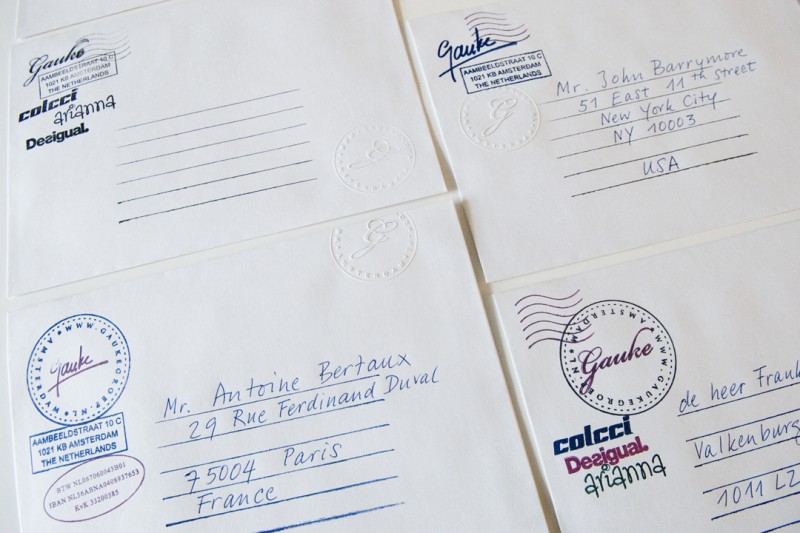 Gauke
AAMBEELDSTRAAT 10 C
1021 KB AMSTERDAM
THE NETHERLANDS
colcci
arianna
Desigual.
Gauke
AAMBEELDSTRAAT 10 C
1021 KB AMSTERDAM
THE NETHERLANDS
Mr. John Barrymore
51 East 11th street
New York City
NY 10003
USA
WWW.GAUKEGROEP.NL
AMSTERDAM
Gauke
AAMBEELDSTRAAT 10 C
1021 KB AMSTERDAM
THE NETHERLANDS
BTW NL067060043B01
KvK 33200385
Mr. Antoine Bertaux
29 Rue Ferdinand Duval
75004 Paris
France
AMSTERDAM
Gauke
colcci
Desigual.
arianna
de heer Frank
Valkenburg
1011 LZ